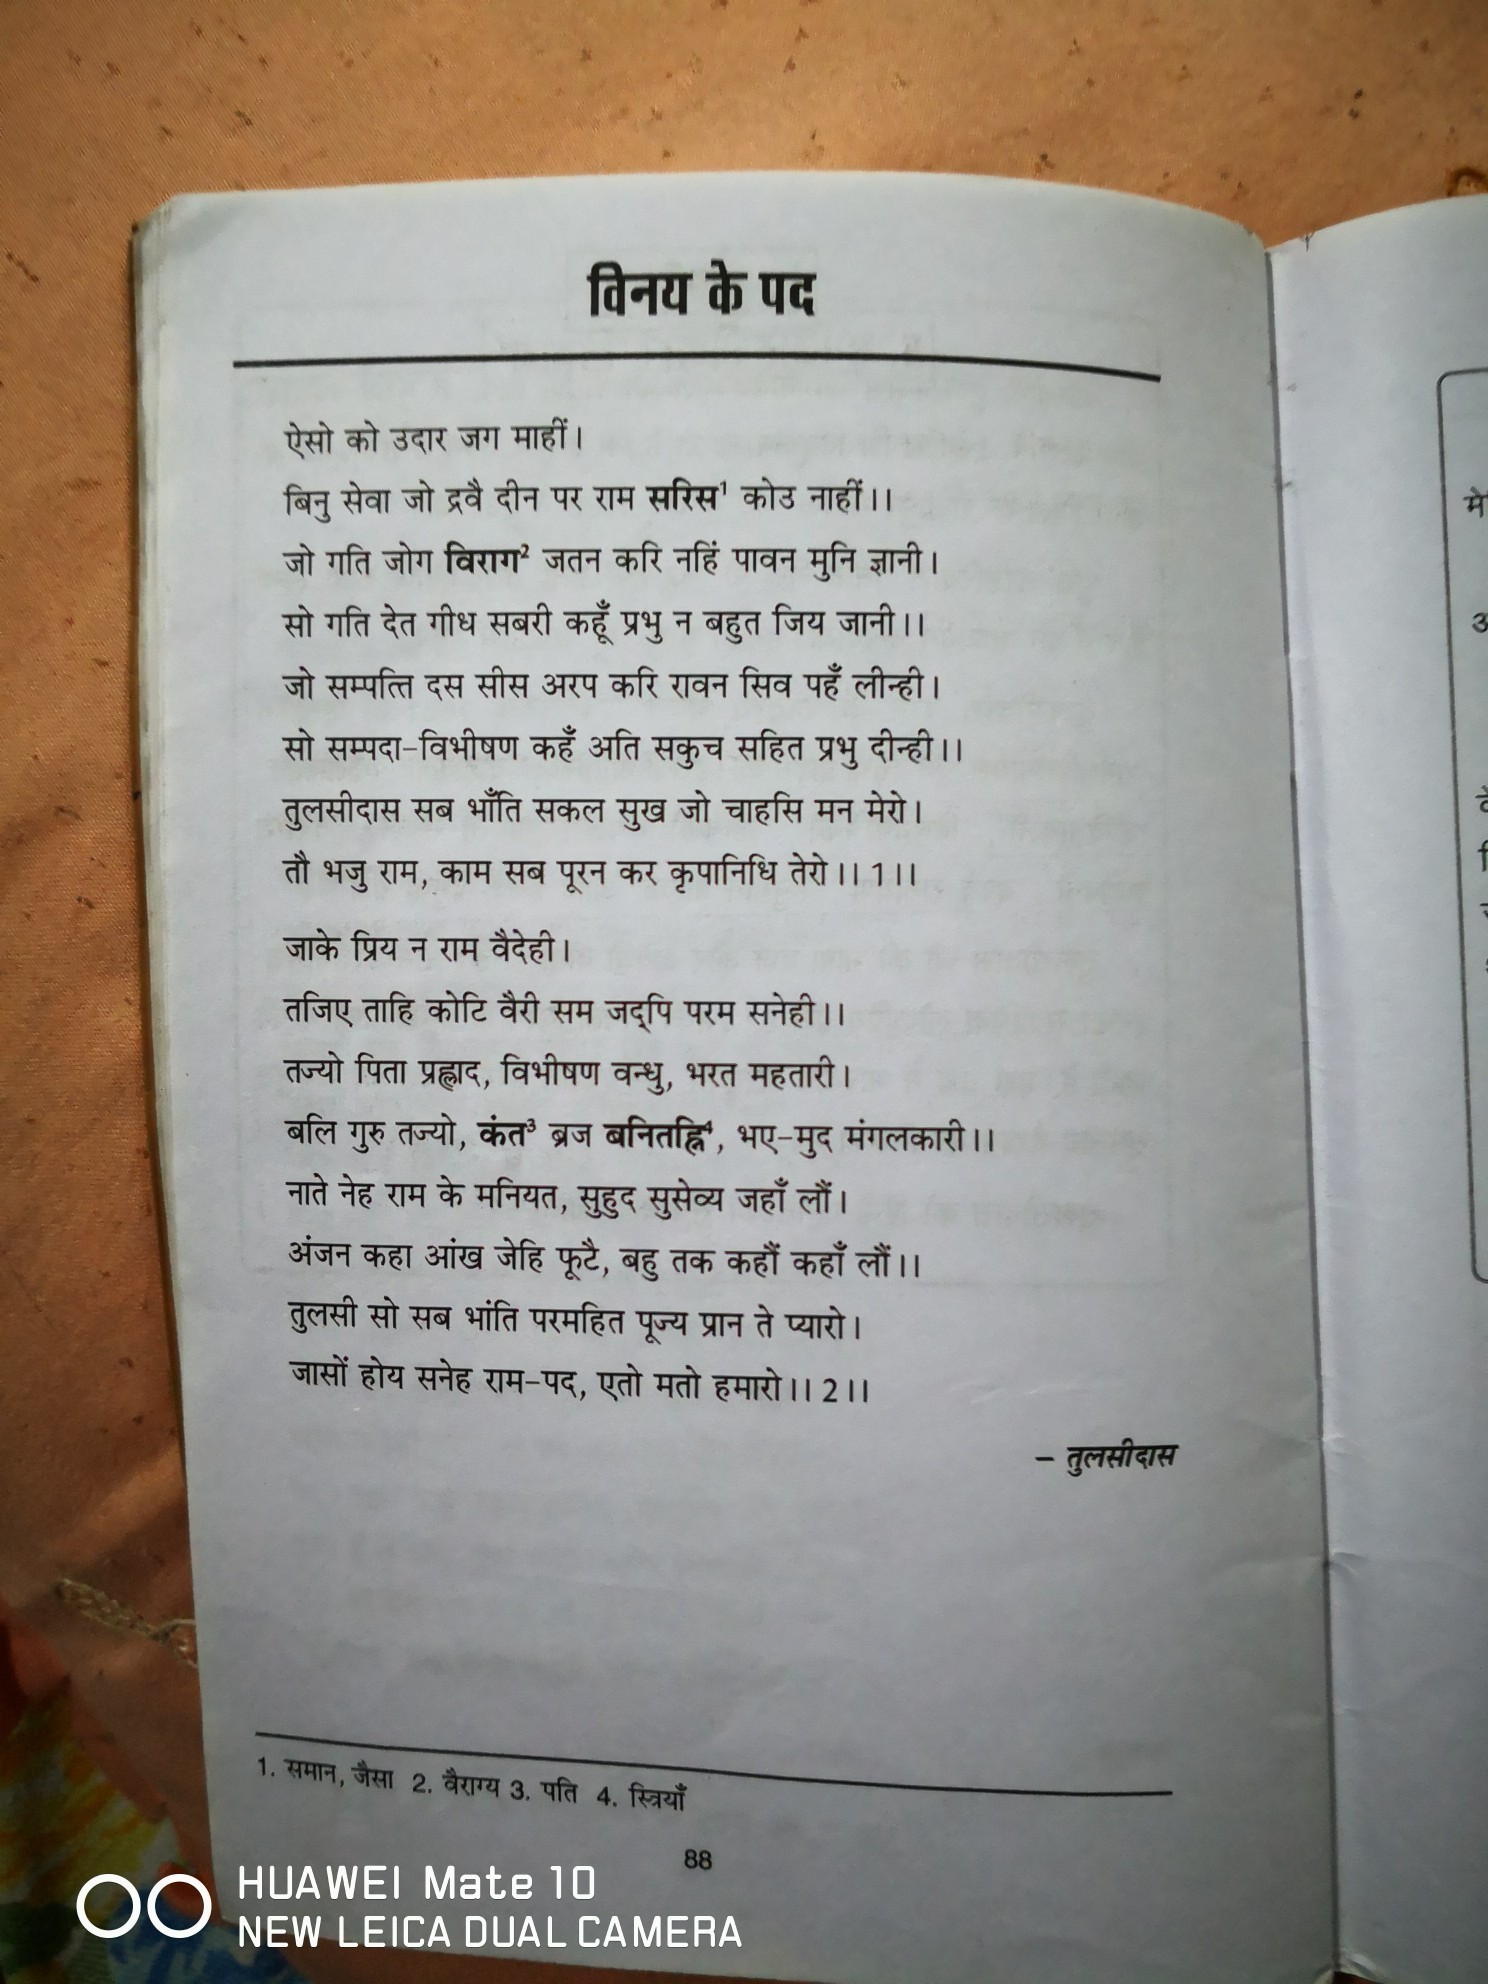 विनय के पद
ऐसो को उदार जग माहीं।
बिनु सेवा जो द्रवै दीन पर राम सरिस¹ कोउ नाहीं।।
जो गति जोग विराग² जतन करि नहिं पावन मुनि ज्ञानी।
सो गति देत गीध सबरी कहूँ प्रभु न बहुत जिय जानी।।
जो सम्पत्ति दस सीस अरप करि रावन सिव पहँ लीन्ही।
सो सम्पदा-विभीषण कहँ अति सकुच सहित प्रभु दीन्ही।।
तुलसीदास सब भाँति सकल सुख जो चाहसि मन मेरो।
तौ भजु राम, काम सब पूरन कर कृपानिधि तेरो।। 1।।
जाके प्रिय न राम वैदेही।
तजिए ताहि कोटि वैरी सम जद्पि परम सनेही।।
तज्यो पिता प्रह्लाद, विभीषण वन्धु, भरत महतारी।
बलि गुरु तज्यो, कंत³ ब्रज बनितह्नि⁴, भए-मुद मंगलकारी।।
नाते नेह राम के मनियत, सुहुद सुसेव्य जहाँ लौं।
अंजन कहा आंख जेहि फूटै, बहु तक कहौं कहाँ लौं।।
तुलसी सो सब भांति परमहित पूज्य प्रान ते प्यारो।
जासों होय सनेह राम-पद, एतो मतो हमारो।। 2।।
– तुलसीदास
1. समान, जैसा 2. वैराग्य 3. पति 4. स्त्रियाँ
88
HUAWEI Mate 10
NEW LEICA DUAL CAMERA